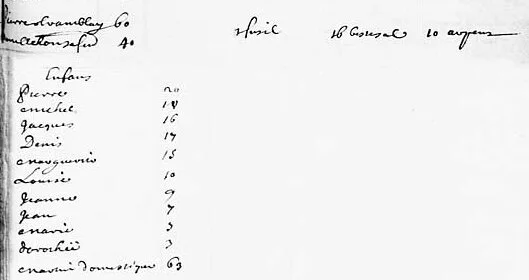 Pierre tramblay 60 1 fusil 16 bestial 10 arpens
40
Enfans
Pierre 20
michel 18
Jacques 16
Denis 17
marguerite 15
Louise 10
Jeanne 9
Jean 7
marie 3
dorothée 3
domestique 63